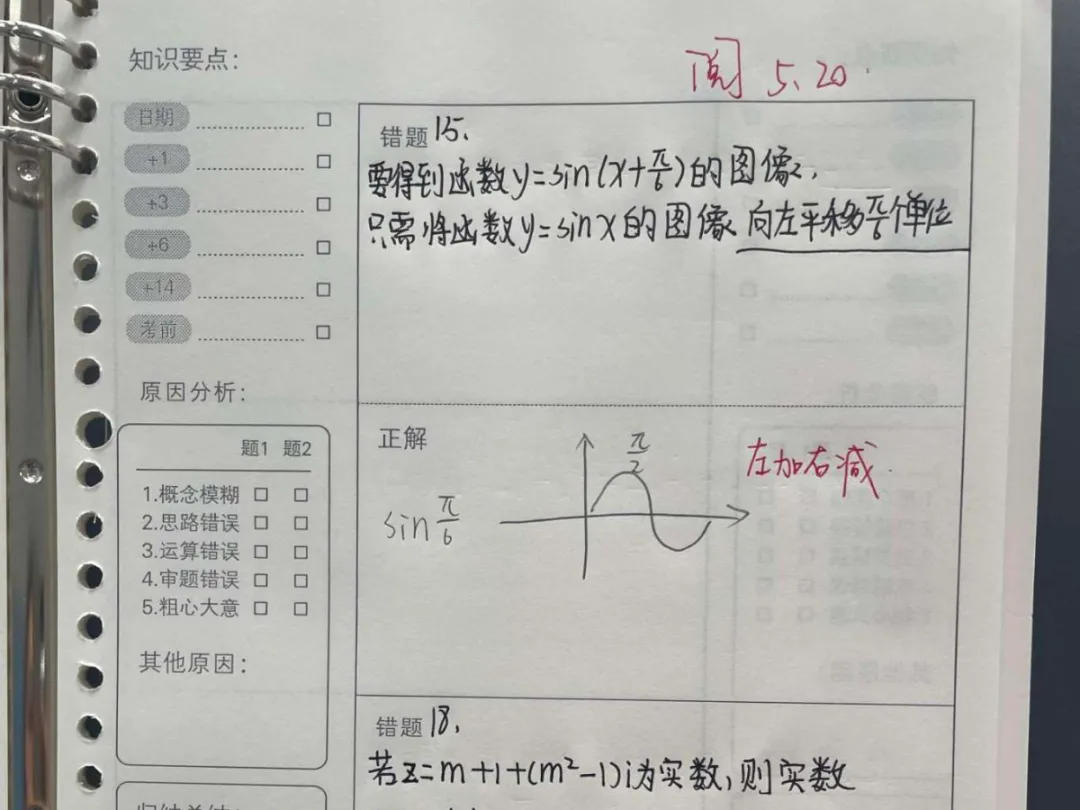 知识要点:
阅 5.20.
日期
+1
+3
+6
+14
考前
错题 15.
要得到函数y=sin(x+π/6)的图像,
只需将函数y=sinx的图像 向左平移π/6个单位
原因分析:
题1 题2
1.概念模糊
2.思路错误
3.运算错误
4.审题错误
5.粗心大意
其他原因:
正解
sin π/6
π/2
左加右减.
错题 18.
若z=m+1+(m²-1)i为实数,则实数